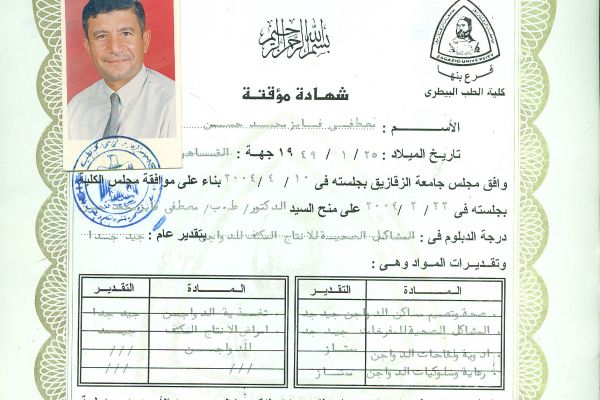 بسم الله الرحمن الرحيم
ZAGAZIG-UNIVERSITY
فرع بنها
كلية الطب البيطرى
شهادة مؤقتة
الأسم : مصطفى فايز محمد حسن
تاريخ الميلاد : ٢٥ / ١ / ١٩٤٩ جهة : القاهرة
وافق مجلس جامعة الزقازيق بجلسته فى ١٠ / ٤ / ٢٠٠٤ بناء على موافقة مجلس الكلية
بجلسته فى ٢٢ / ٢ / ٢٠٠٤ على منح السيد الدكتور/ ط.ب/ مصطفى فايز
درجة الدبلوم فى : المشاكل الصحية للانتاج المكثف للدواجن بتقدير عام : جيد جدا
وتقديرات المواد وهى :
المادة التقدير المادة التقدير
صحة وتصميم مساكن الدواجن جيد جدا تغذية الدواجن جيد جدا
المشاكل الصحية للمفرخات جيد جدا امراض الانتاج المكثف جيد
ادوية ولقاحات الدواجن ممتاز للدواجن ///
رعاية وسلوكيات الدواجن ممتاز /// ///